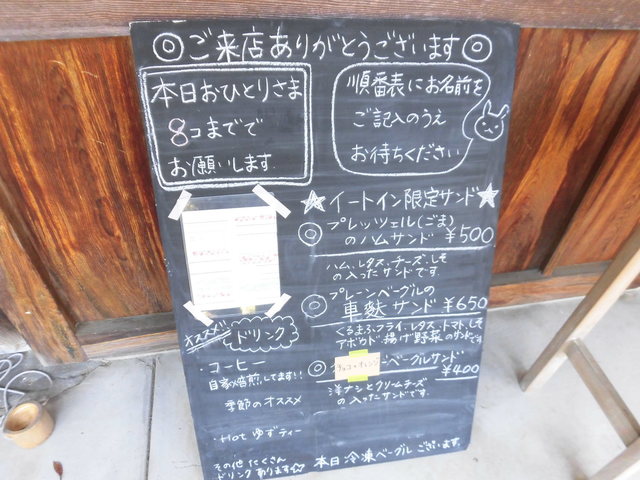 ◎ご来店ありがとうございます◎
本日おひとりさま
8コまでで
お願いします
順番表にお名前を
ご記入のうえ
お待ちください
☆イートイン限定サンド☆
◎プレッツェル(ごま)
のハムサンド ¥500
ハム、レタス、チーズ、しそ
の入ったサンドです。
◎プレーンベーグルの
車麩サンド ¥650
くるまふフライ、レタス、トマト、しそ
アボカド、揚げ野菜のサンドです
ベーグルサンド
¥400
洋ナシとクリームチーズ
の入ったサンドです。
オススメ!
ドリンク
・コーヒー
自家焙煎してます!!
季節のオススメ
・Hot ゆずティー
その他 たくさん
ドリンク あります
本日 冷凍ベーグル ございます。